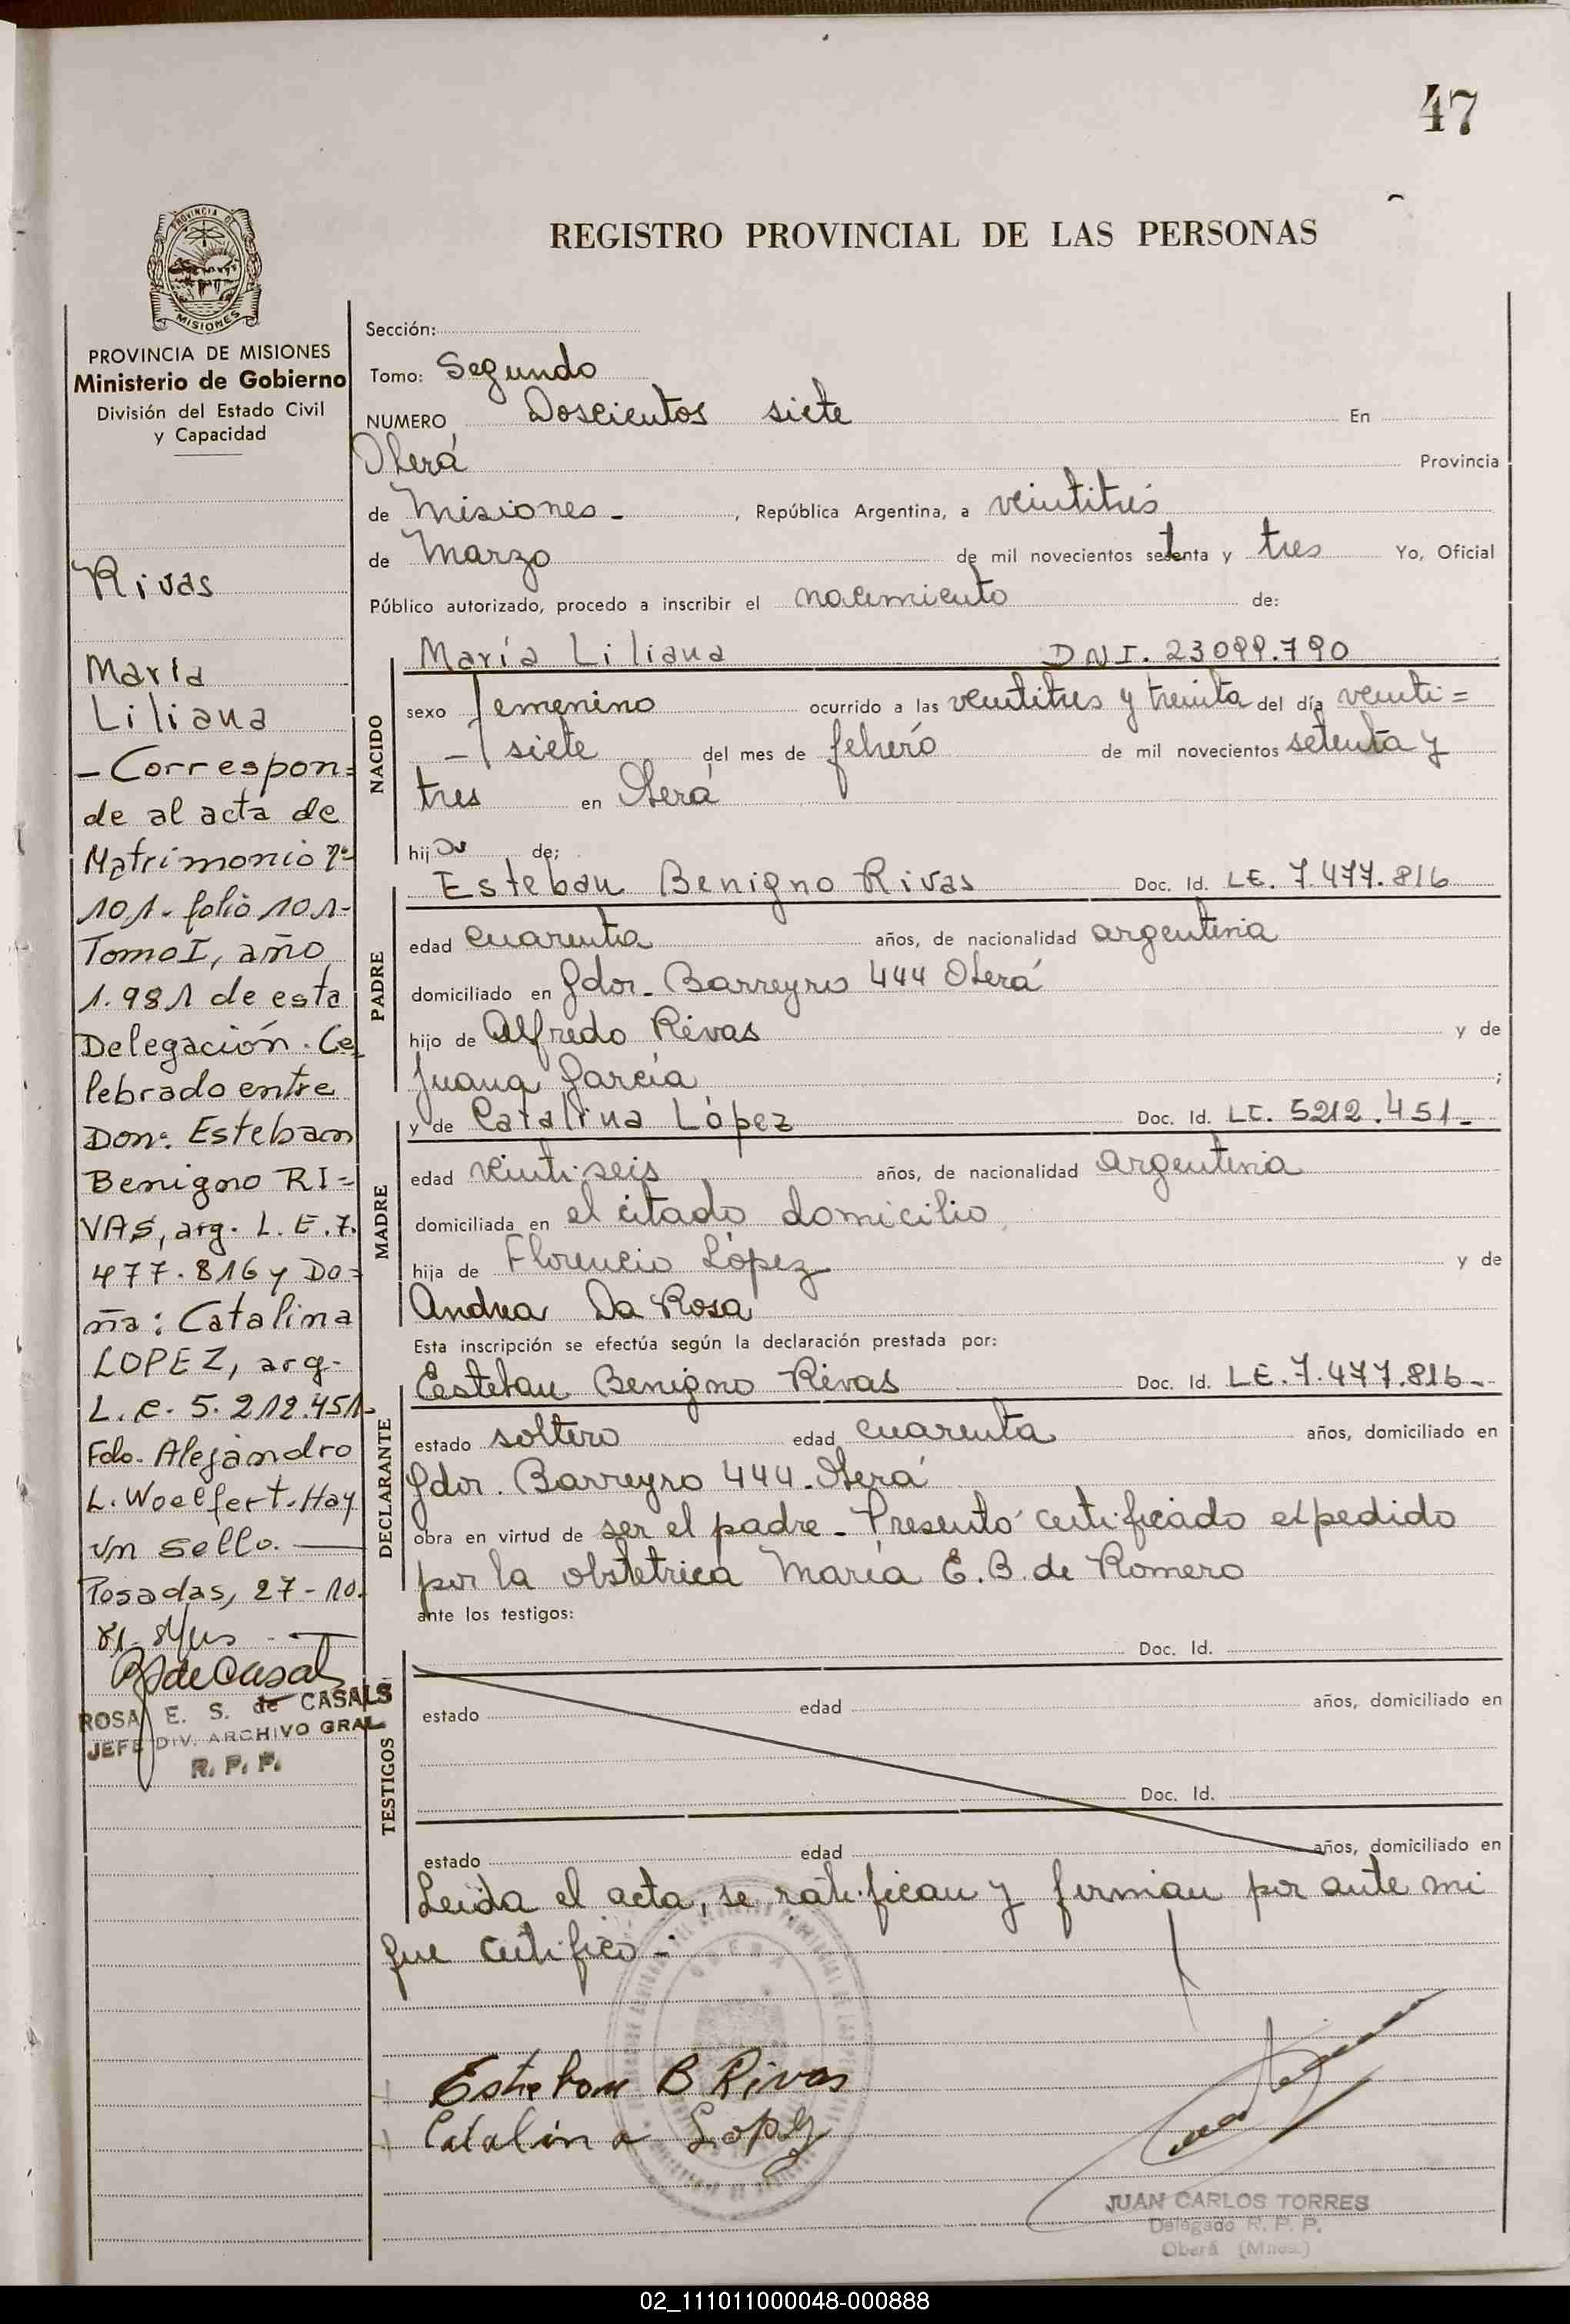 47
REGISTRO PROVINCIAL DE LAS PERSONAS
PROVINCIA DE
MISIONES
PROVINCIA DE MISIONES
Ministerio de Gobierno
División del Estado Civil
y Capacidad
Rivas
María
Liliana
- Correspon=
de al acta de
Matrimonio nº
101. folio 101-
Tomo I, año
1.981 de esta
Delegación. Ce
lebrado entre
Don: Esteban
Benigno RI=
VAS, arg. L. E. 7.
477.816 y Do=
ña: Catalina
LOPEZ, arg-
L. C. 5.212.451.
Fdo. Alejandro
L. Woelfert. Hay
un sello.
Posadas, 27-10.
81.
ROSA E. S. de CASALS
JEFE DIV. ARCHIVO GRAL.
R. P. P.
Sección:
Tomo: Segundo
NUMERO Doscientos siete En
Oberá Provincia
de Misiones - , República Argentina, a veintitrés
de Marzo de mil novecientos setenta y tres Yo, Oficial
Público autorizado, procedo a inscribir el nacimiento de:
María Liliana DNI. 23099.790
NACIDO
sexo femenino ocurrido a las veintitres y treinta del día veinti=
- siete del mes de febrero de mil novecientos setenta y
tres en Oberá
hija de;
Esteban Benigno Rivas Doc. Id. LE. 7.477.816
PADRE
edad cuarenta años, de nacionalidad argentina
domiciliado en Gdor. Barreyro 444 Oberá
hijo de Alfredo Rivas y de
Juana García ;
y de Catalina López Doc. Id. LC. 5212.451-
MADRE
edad veinti-seis años, de nacionalidad argentina
domiciliada en el citado domicilio
hija de Florencio López y de
Andrea Da Rosa
Esta inscripción se efectúa según la declaración prestada por:
Eesteban Benigno Rivas Doc. Id. LE. 7.477.816-
DECLARANTE
estado soltero edad cuarenta años, domiciliado en
Gdor. Barreyro 444. Oberá
obra en virtud de ser el padre - Presentó certificado expedido
por la obstetrica María E. B. de Romero
ante los testigos:
Doc. Id.
TESTIGOS
estado edad años, domiciliado en
Doc. Id.
estado edad años, domiciliado en
Leída el acta, se ratifican y firman por ante mi
que certifico -
Esteban B Rivas
Catalina Lopez
JUAN CARLOS TORRES
Delegado R. P. P.
Oberá (Mnes.)
02_111011000048-000888